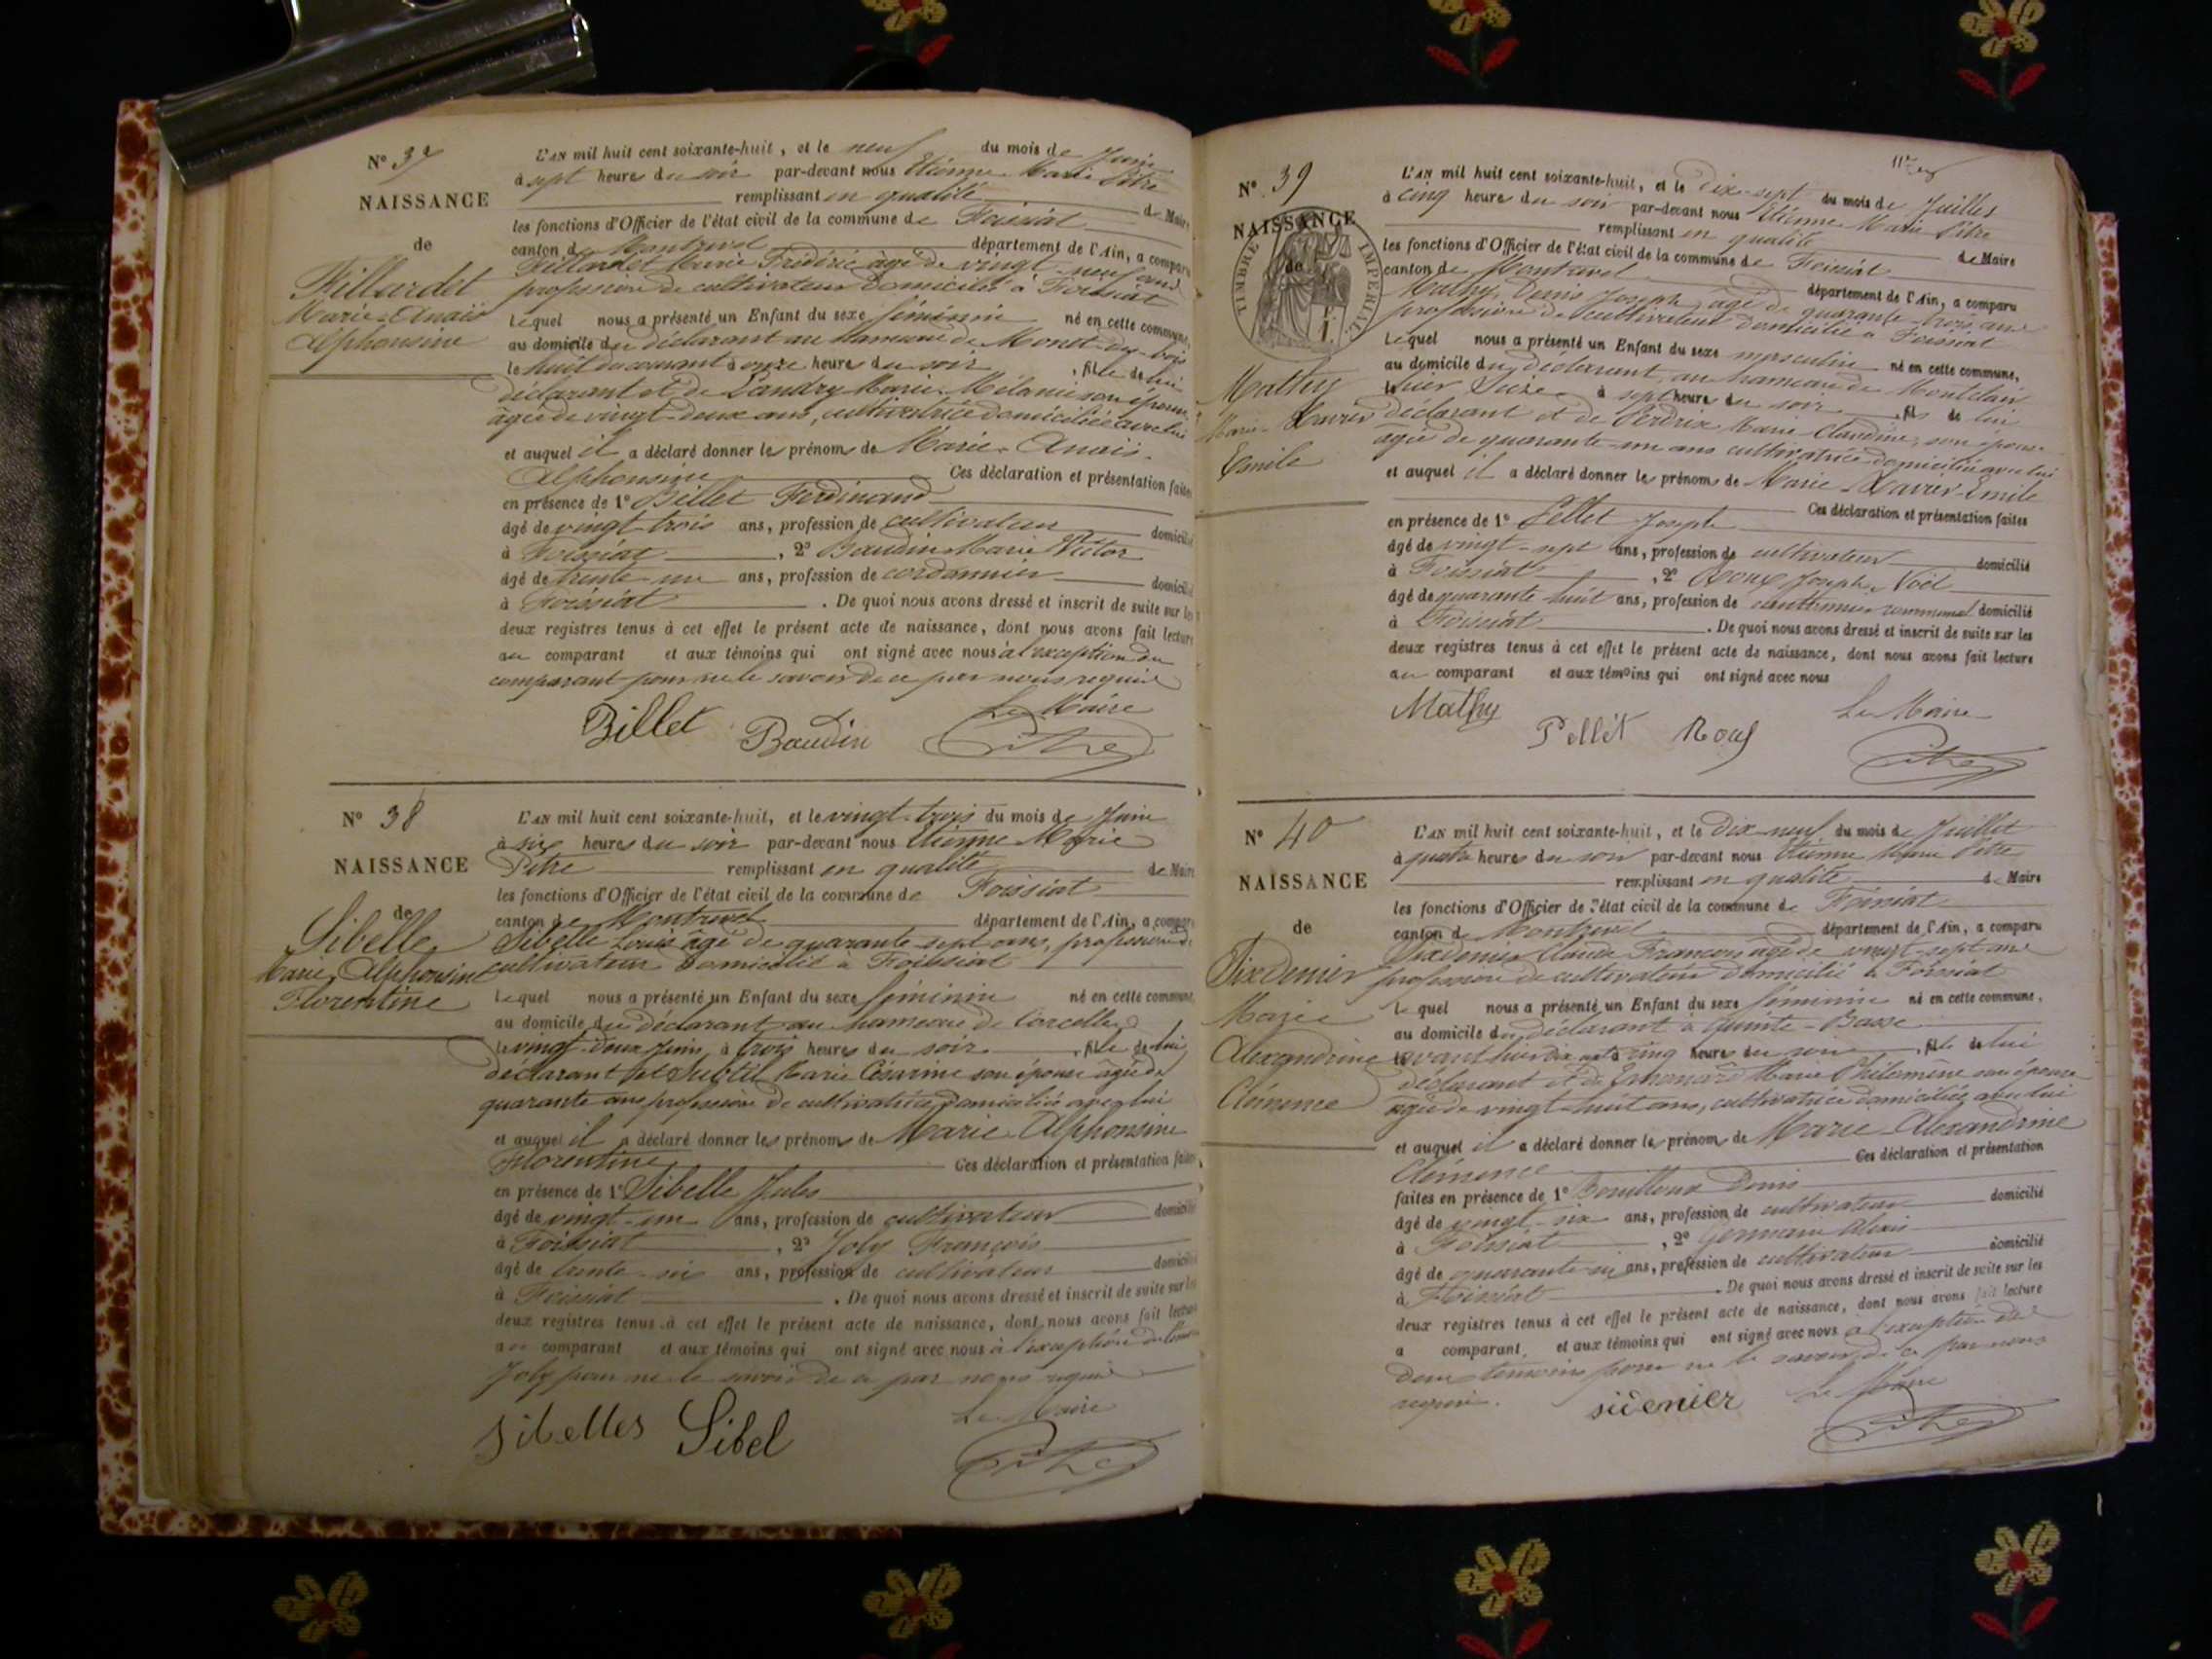 N° 37
NAISSANCE
de
Fillardet
Marie-Anaïs
Alphonsine
L'AN mil huit cent soixante-huit, et le neuf du mois de Juin
à sept heures du soir par-devant nous Etienne Marie Pitre
remplissant en qualité de Maire
les fonctions d'Officier de l'état civil de la commune de Foissiat
canton de Montrevel département de l'Ain, a comparu
Fillardet Marie Frédéric âgé de vingt-neuf ans
profession de cultivateur domicilié à Foissiat
Lequel nous a présenté un Enfant du sexe féminin né en cette commune,
au domicile du déclarant au hameau de Monet-du-bois
le huit du courant à onze heures du soir, fille de lui
déclarant et de Landry Marie Mélanie son épouse
âgée de vingt-deux ans, cultivatrice domiciliée avec lui
et auquel il a déclaré donner les prénoms de Marie-Anaïs-
Alphonsine Ces déclaration et présentation faites
en présence de 1° Billet Ferdinand
âgé de vingt trois ans, profession de cultivateur domicilié
à Foissiat, 2° Baudin Marie Victor
âgé de trente-un ans, profession de cordonnier domicilié
à Foissiat. De quoi nous avons dressé et inscrit de suite sur les
deux registres tenus à cet effet le présent acte de naissance, dont nous avons fait lecture
au comparant et aux témoins qui ont signé avec nous à l'exception du
comparant pour ne le savoir de ce par nous requis
Le Maire
Billet Baudin Pitre
N° 38
NAISSANCE
de
Sibelle
Marie Alphonsine
Florentine
L'AN mil huit cent soixante-huit, et le vingt-trois du mois de Juin
à six heures du soir par-devant nous Etienne Marie
Pitre remplissant en qualité de Maire
les fonctions d'Officier de l'état civil de la commune de Foissiat
canton de Montrevel département de l'Ain, a comparu
Sibelle Louis âgé de quarante-sept ans, profession de
cultivateur domicilié à Foissiat
Lequel nous a présenté un Enfant du sexe féminin né en cette commune,
au domicile du déclarant au hameau de Corcelles
le vingt-deux Juin à trois heures du soir, fille de lui
déclarant et Subtil Marie Césarine son épouse âgée de
quarante ans profession de cultivatrice domiciliée avec lui
et auquel il a déclaré donner les prénoms de Marie-Alphonsine
Florentine Ces déclaration et présentation faites
en présence de 1° Sibelle Jules
âgé de vingt-un ans, profession de cultivateur domicilié
à Foissiat, 2° Joly François
âgé de trente-six ans, profession de cultivateur domicilié
à Foissiat. De quoi nous avons dressé et inscrit de suite sur les
deux registres tenus à cet effet le présent acte de naissance, dont nous avons fait lecture
au comparant et aux témoins qui ont signé avec nous à l'exception du
Joly pour ne le savoir de ce par nous requis
Le Maire
Sibelles Sibel Pitre
N° 39
NAISSANCE
de
TIMBRE IMPERIAL
Mathy
Marie-Xavier
Emile
L'AN mil huit cent soixante-huit, et le Dix-sept du mois de Juillet
à cinq heures du soir par-devant nous Etienne Marie Pitre
remplissant en qualité de Maire
les fonctions d'Officier de l'état civil de la commune de Foissiat
canton de Montrevel département de l'Ain, a comparu
Mathy Denis Joseph, âgé de quarante-trois ans
profession de cultivateur domicilié à Foissiat
Lequel nous a présenté un Enfant du sexe masculin né en cette commune,
au domicile du déclarant, au hameau de Montclair
hier Seize à sept heures du soir, fils de lui
déclarant et de Perdrix Marie Claudine, son épouse
âgée de quarante-un ans cultivatrice domiciliée avec lui
et auquel il a déclaré donner les prénoms de Marie-Xavier-Emile
Ces déclaration et présentation faites
en présence de 1° Pellet Joseph
âgé de vingt-sept ans, profession de cultivateur domicilié
à Foissiat, 2° Roux Joseph-Noël
âgé de quarante huit ans, profession de cantonnier communal domicilié
à Foissiat. De quoi nous avons dressé et inscrit de suite sur les
deux registres tenus à cet effet le présent acte de naissance, dont nous avons fait lecture
au comparant et aux témoins qui ont signé avec nous
Mathy Le Maire
Pellet Roux Pitre
N° 40
NAISSANCE
de
Sixdenier
Marie
Alexandrine
Clémence
L'AN mil huit cent soixante-huit, et le Dix-neuf du mois de Juillet
à quatre heures du soir par-devant nous Etienne Marie Pitre
remplissant en qualité de Maire
les fonctions d'Officier de l'état civil de la commune de Foissiat
canton de Montrevel département de l'Ain, a comparu
Sixdenier Claude François âgé de vingt-sept ans
profession de cultivateur domicilié à Foissiat
Lequel nous a présenté un Enfant du sexe féminin né en cette commune,
au domicile du déclarant à Quinte-Basse
avant hier dix sept à cinq heures du soir, fille de lui
déclarant et de Marie Philomène son épouse
âgée de vingt-huit ans, cultivatrice domiciliée avec lui
et auquel il a déclaré donner les prénoms de Marie-Alexandrine
Clémence Ces déclaration et présentation
faites en présence de 1° Bouilloux Denis
âgé de vingt-six ans, profession de cultivateur domicilié
à Foissiat, 2° Germain Alexis
âgé de quarante-six ans, profession de cultivateur domicilié
à Foissiat. De quoi nous avons dressé et inscrit de suite sur les
deux registres tenus à cet effet le présent acte de naissance, dont nous avons fait lecture
a comparant, et aux témoins qui ont signé avec nous à l'exception des
deux témoins pour ne le savoir de ce par nous
requis. Le Maire
Pitre